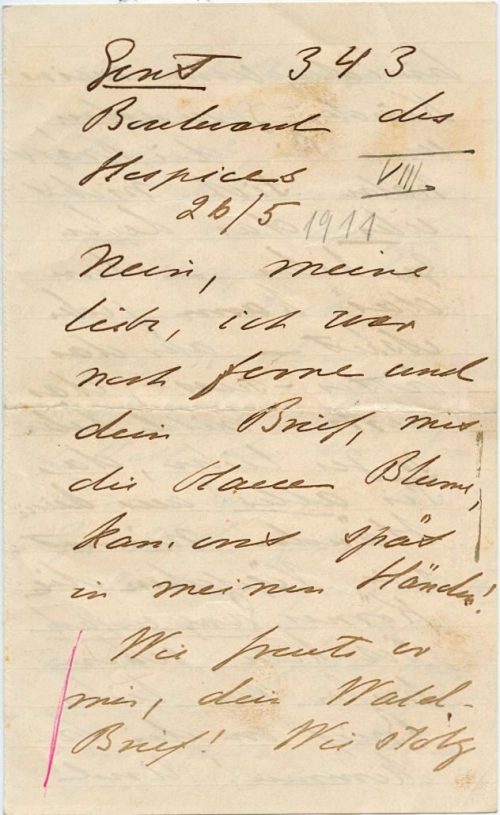 Gent 343
Boulevard des
Hospices VIII
26/5 1911
Nein, meine
liebe, ich war
noch ferne und
dein Brief, mit
die blaue Blume,
kam erst spät
in meinen Händen!
Wie freute er
mir, dein Wald-
Brief! Wie stolz